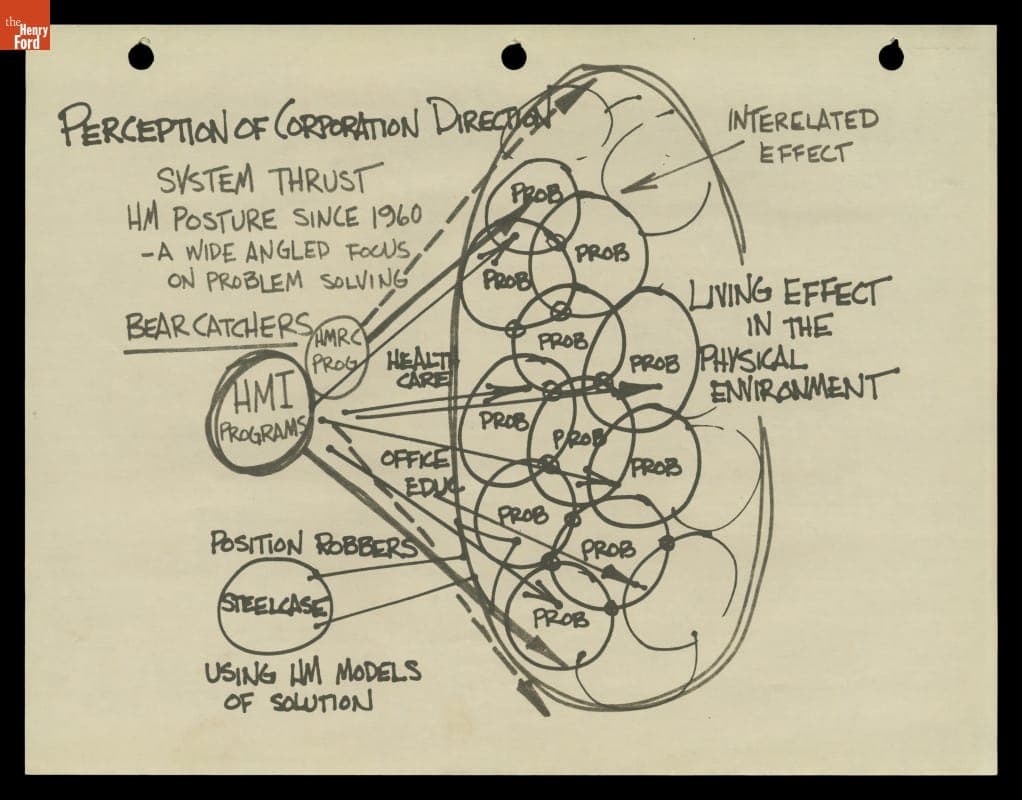 the
Henry
Ford
PERCEPTION OF CORPORATION DIRECTION
SYSTEM THRUST
HM POSTURE SINCE 1960
-A WIDE ANGLED FOCUS
ON PROBLEM SOLVING
BEAR CATCHERS
HMRC
PROG
HMI
PROGRAMS
HEALTH
CARE
OFFICE
EDUC
POSITION ROBBERS
STEELCASE
USING HM MODELS
OF SOLUTION
INTERELATED
EFFECT
LIVING EFFECT
IN THE
PHYSICAL
ENVIRONMENT
PROB
PROB
PROB
PROB
PROB
PROB
PROB
PROB
PROB
PROB
PROB